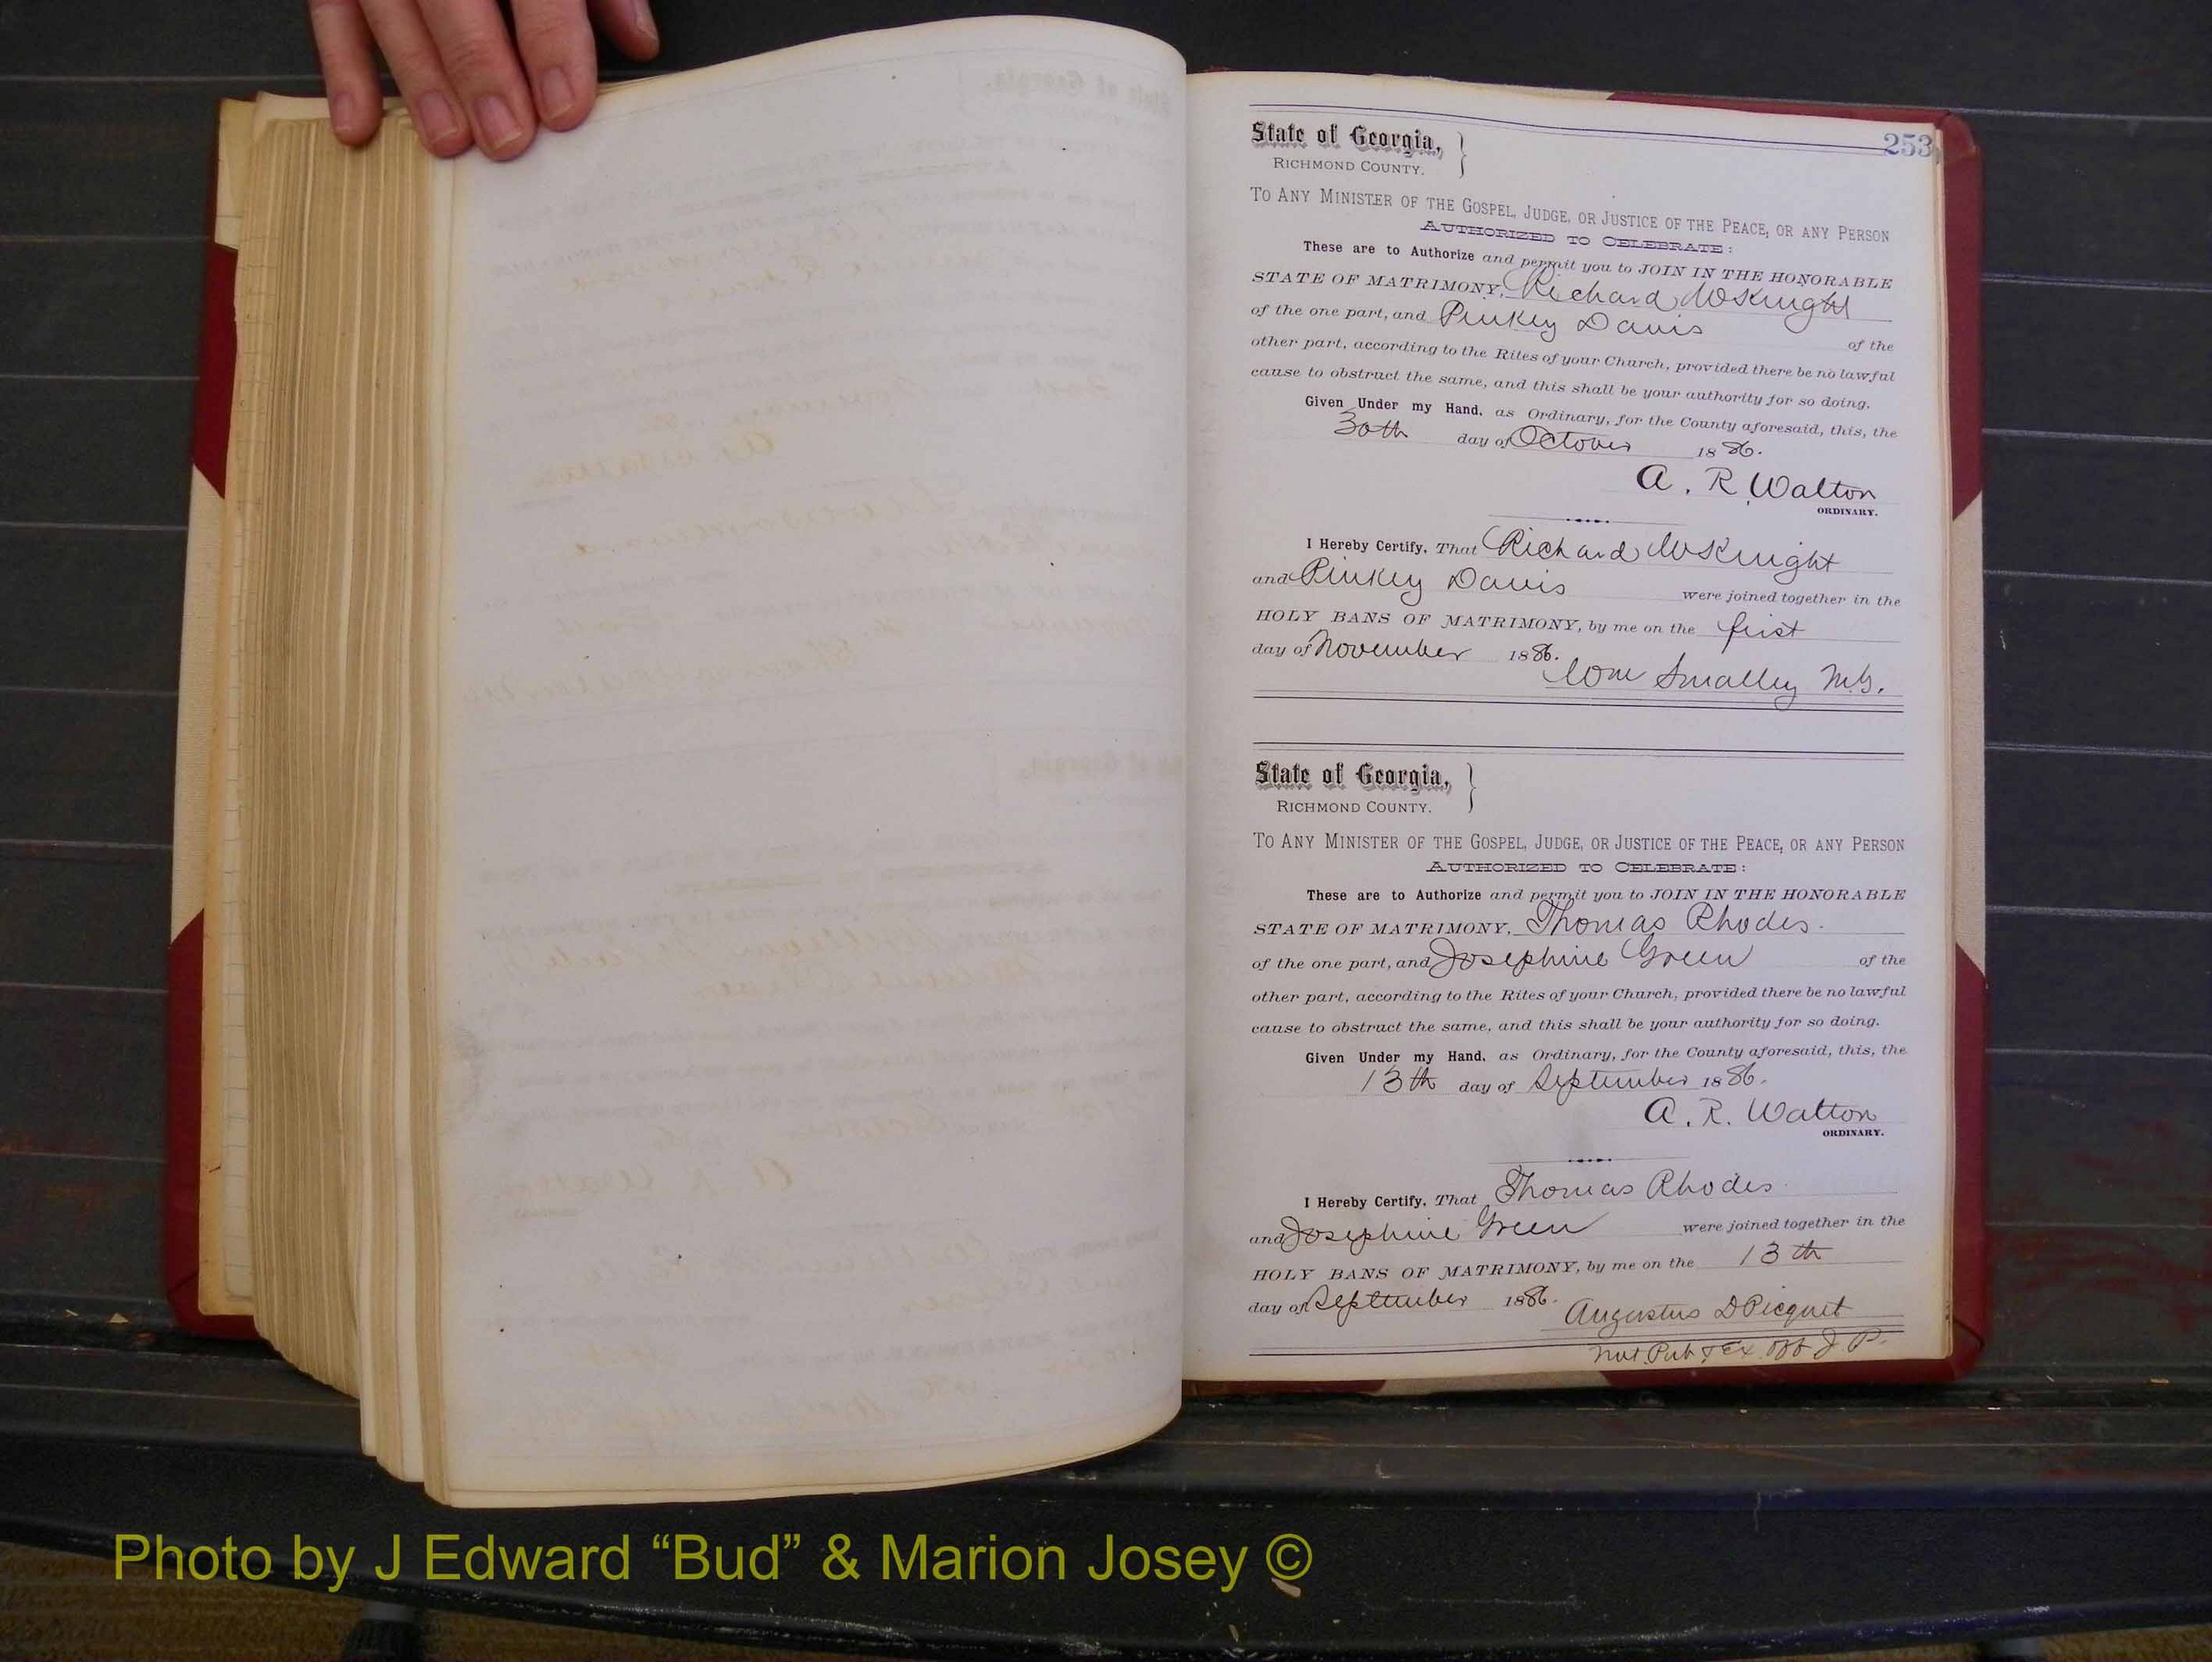 253
State of Georgia, }
RICHMOND COUNTY.
TO ANY MINISTER OF THE GOSPEL, JUDGE, OR JUSTICE OF THE PEACE, OR ANY PERSON
AUTHORIZED TO CELEBRATE:
These are to Authorize and permit you to JOIN IN THE HONORABLE
STATE OF MATRIMONY, Richard McKnight
of the one part, and Pinkey Davis of the
other part, according to the Rites of your Church, provided there be no lawful
cause to obstruct the same, and this shall be your authority for so doing.
Given Under my Hand, as Ordinary, for the County aforesaid, this, the
30th day of October 1886.
A. R. Walton
ORDINARY.
I Hereby Certify, That Richard McKnight
and Pinkey Davis were joined together in the
HOLY BANS OF MATRIMONY, by me on the first
day of November 1886.
Wm Smalley M.G.
State of Georgia, }
RICHMOND COUNTY.
TO ANY MINISTER OF THE GOSPEL, JUDGE, OR JUSTICE OF THE PEACE, OR ANY PERSON
AUTHORIZED TO CELEBRATE:
These are to Authorize and permit you to JOIN IN THE HONORABLE
STATE OF MATRIMONY, Thomas Rhodes.
of the one part, and Josephine Green of the
other part, according to the Rites of your Church, provided there be no lawful
cause to obstruct the same, and this shall be your authority for so doing.
Given Under my Hand, as Ordinary, for the County aforesaid, this, the
13th day of September 1886.
A. R. Walton
ORDINARY.
I Hereby Certify, That Thomas Rhodes
and Josephine Green were joined together in the
HOLY BANS OF MATRIMONY, by me on the 13th
day of September 1886.
Augustus D Picquet
Not. Pub & Ex. Off J. P.
Photo by J Edward “Bud” & Marion Josey ©